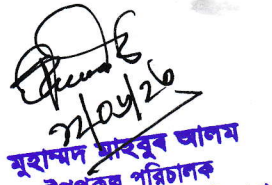 ২২/০৬/২৬
মুহাম্মদ মাহবুব আলম
উপপ্রকল্প পরিচালক